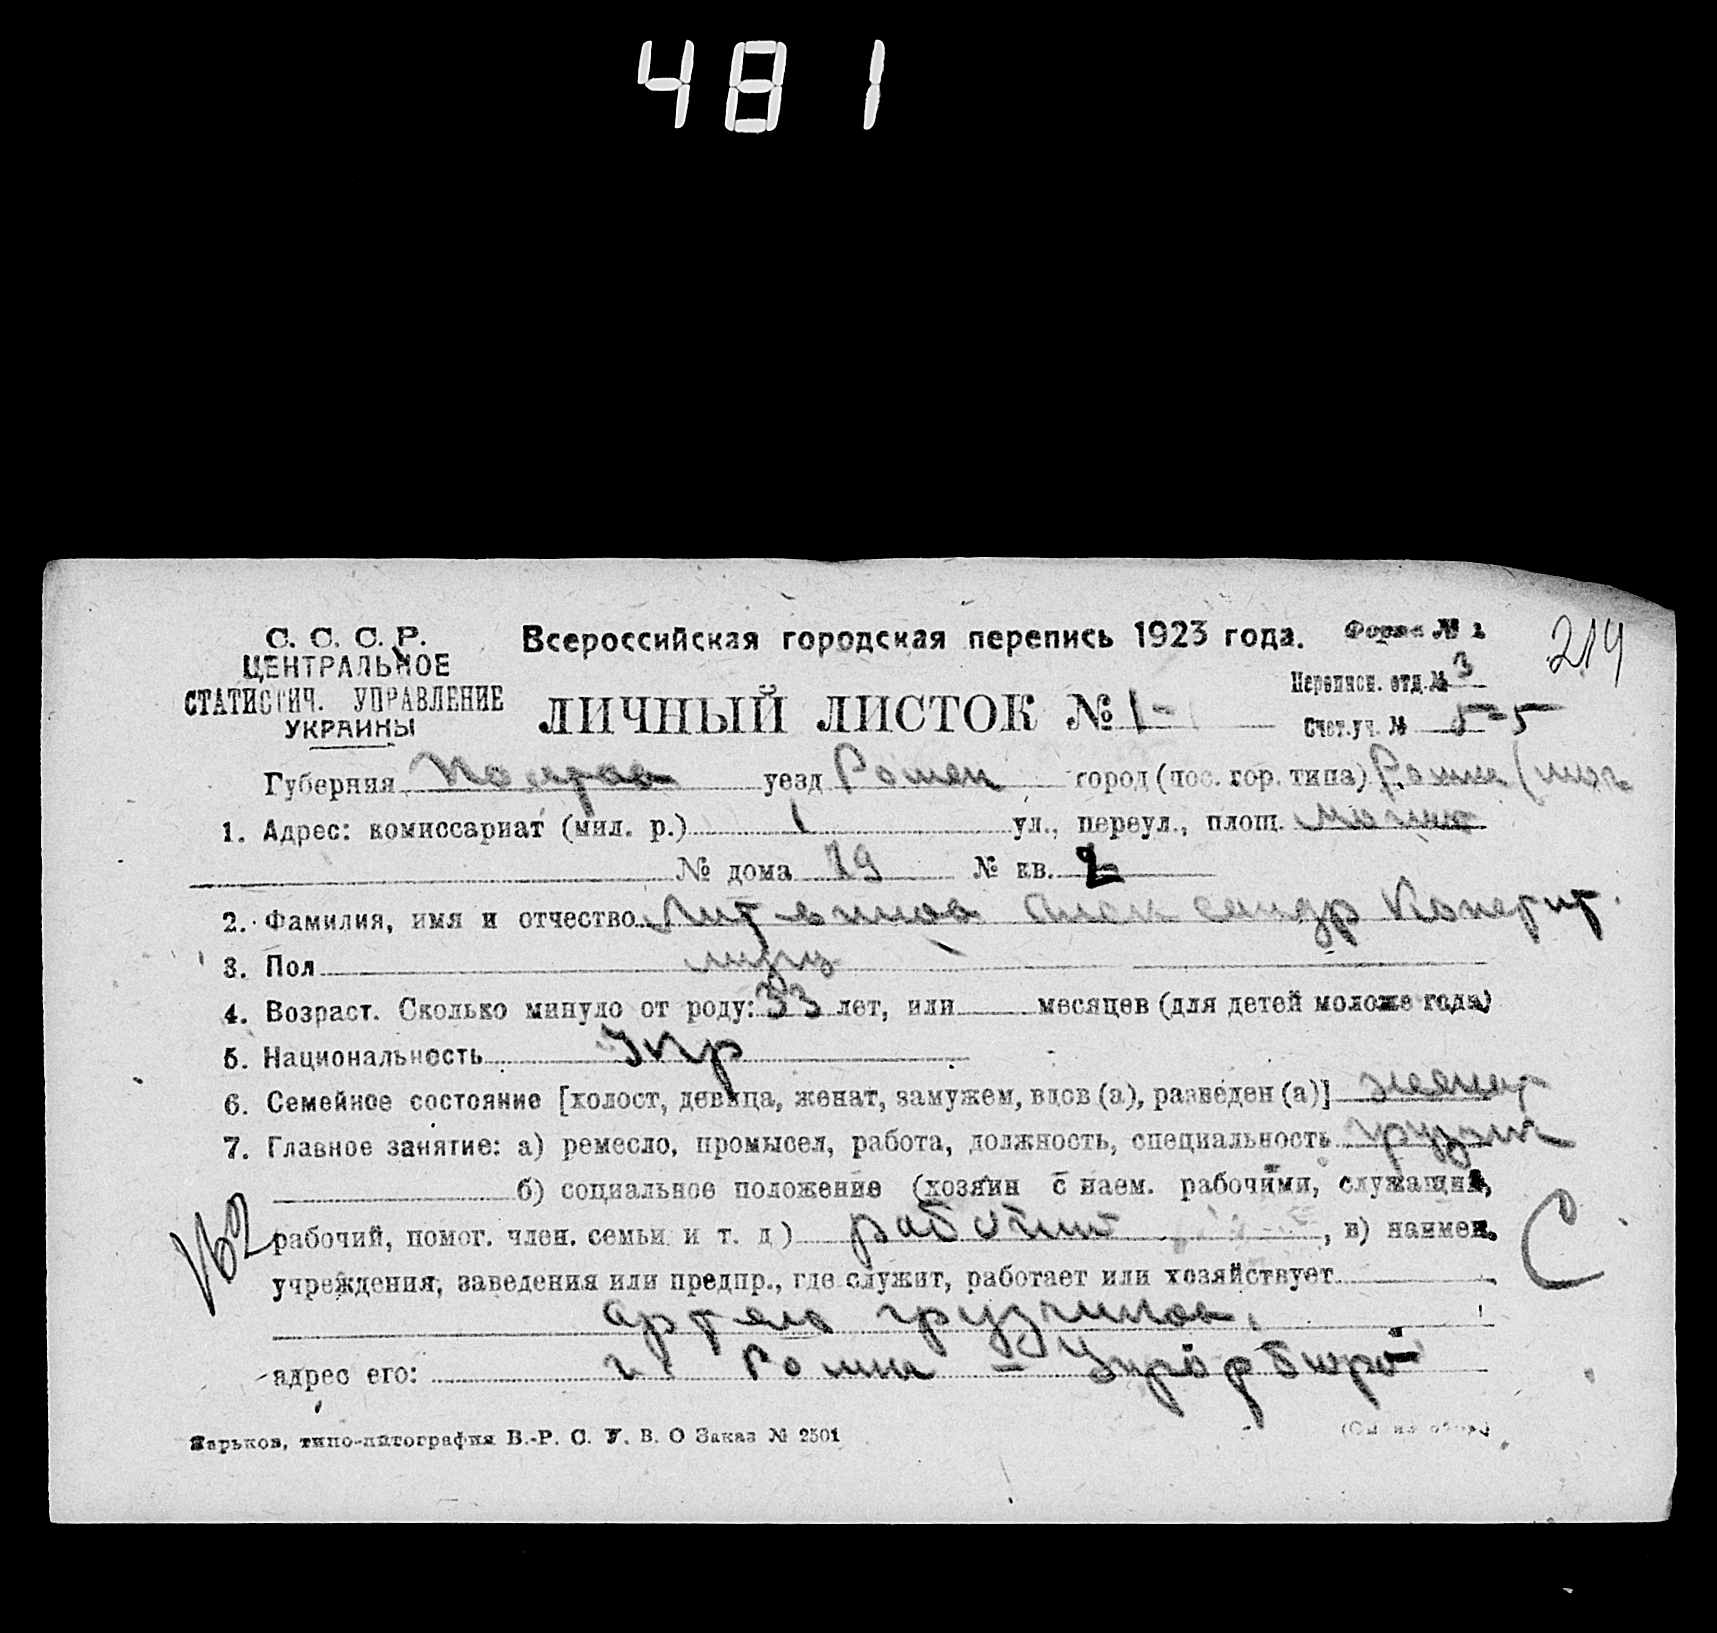 481
С. С. С. Р. Всероссийская городская перепись 1923 года. Форма № 1 219
ЦЕНТРАЛЬНОЕ
СТАТИСТИЧ. УПРАВЛЕНИЕ
УКРАИНЫ
ЛИЧНЫЙ ЛИСТОК № 1-
Переписн. отд. № 3
Счет. уч. № 5-5
Губерния Полтав уезд Ромен город (пос. гор. типа) Ромны
1. Адрес: комиссариат (мил. р.) 1 ул., переул., площ.
№ дома 29 № кв. 2
2. Фамилия, имя и отчество Литвинов Александр
3. Пол мужч
4. Возраст. Сколько минуло от роду: 33 лет, или месяцев (для детей моложе года)
5. Национальность Укр
6. Семейное состояние [холост, девица, женат, замужем, вдов (а), разведен (а)] женат
7. Главное занятие: а) ремесло, промысел, работа, должность, специальность грузчик
б) социальное положение (хозяин с наем. рабочими, служащий,
162 рабочий, помог. член. семьи и т. д) рабочий , в) наимен. С
учреждения, заведения или предпр., где служит, работает или хозяйствует
артель грузчиков.
адрес его: г. Ромны –
Харьков, типо-литография В.-Р. С. У. В. О Заказ № 2501
(См. на обор.)